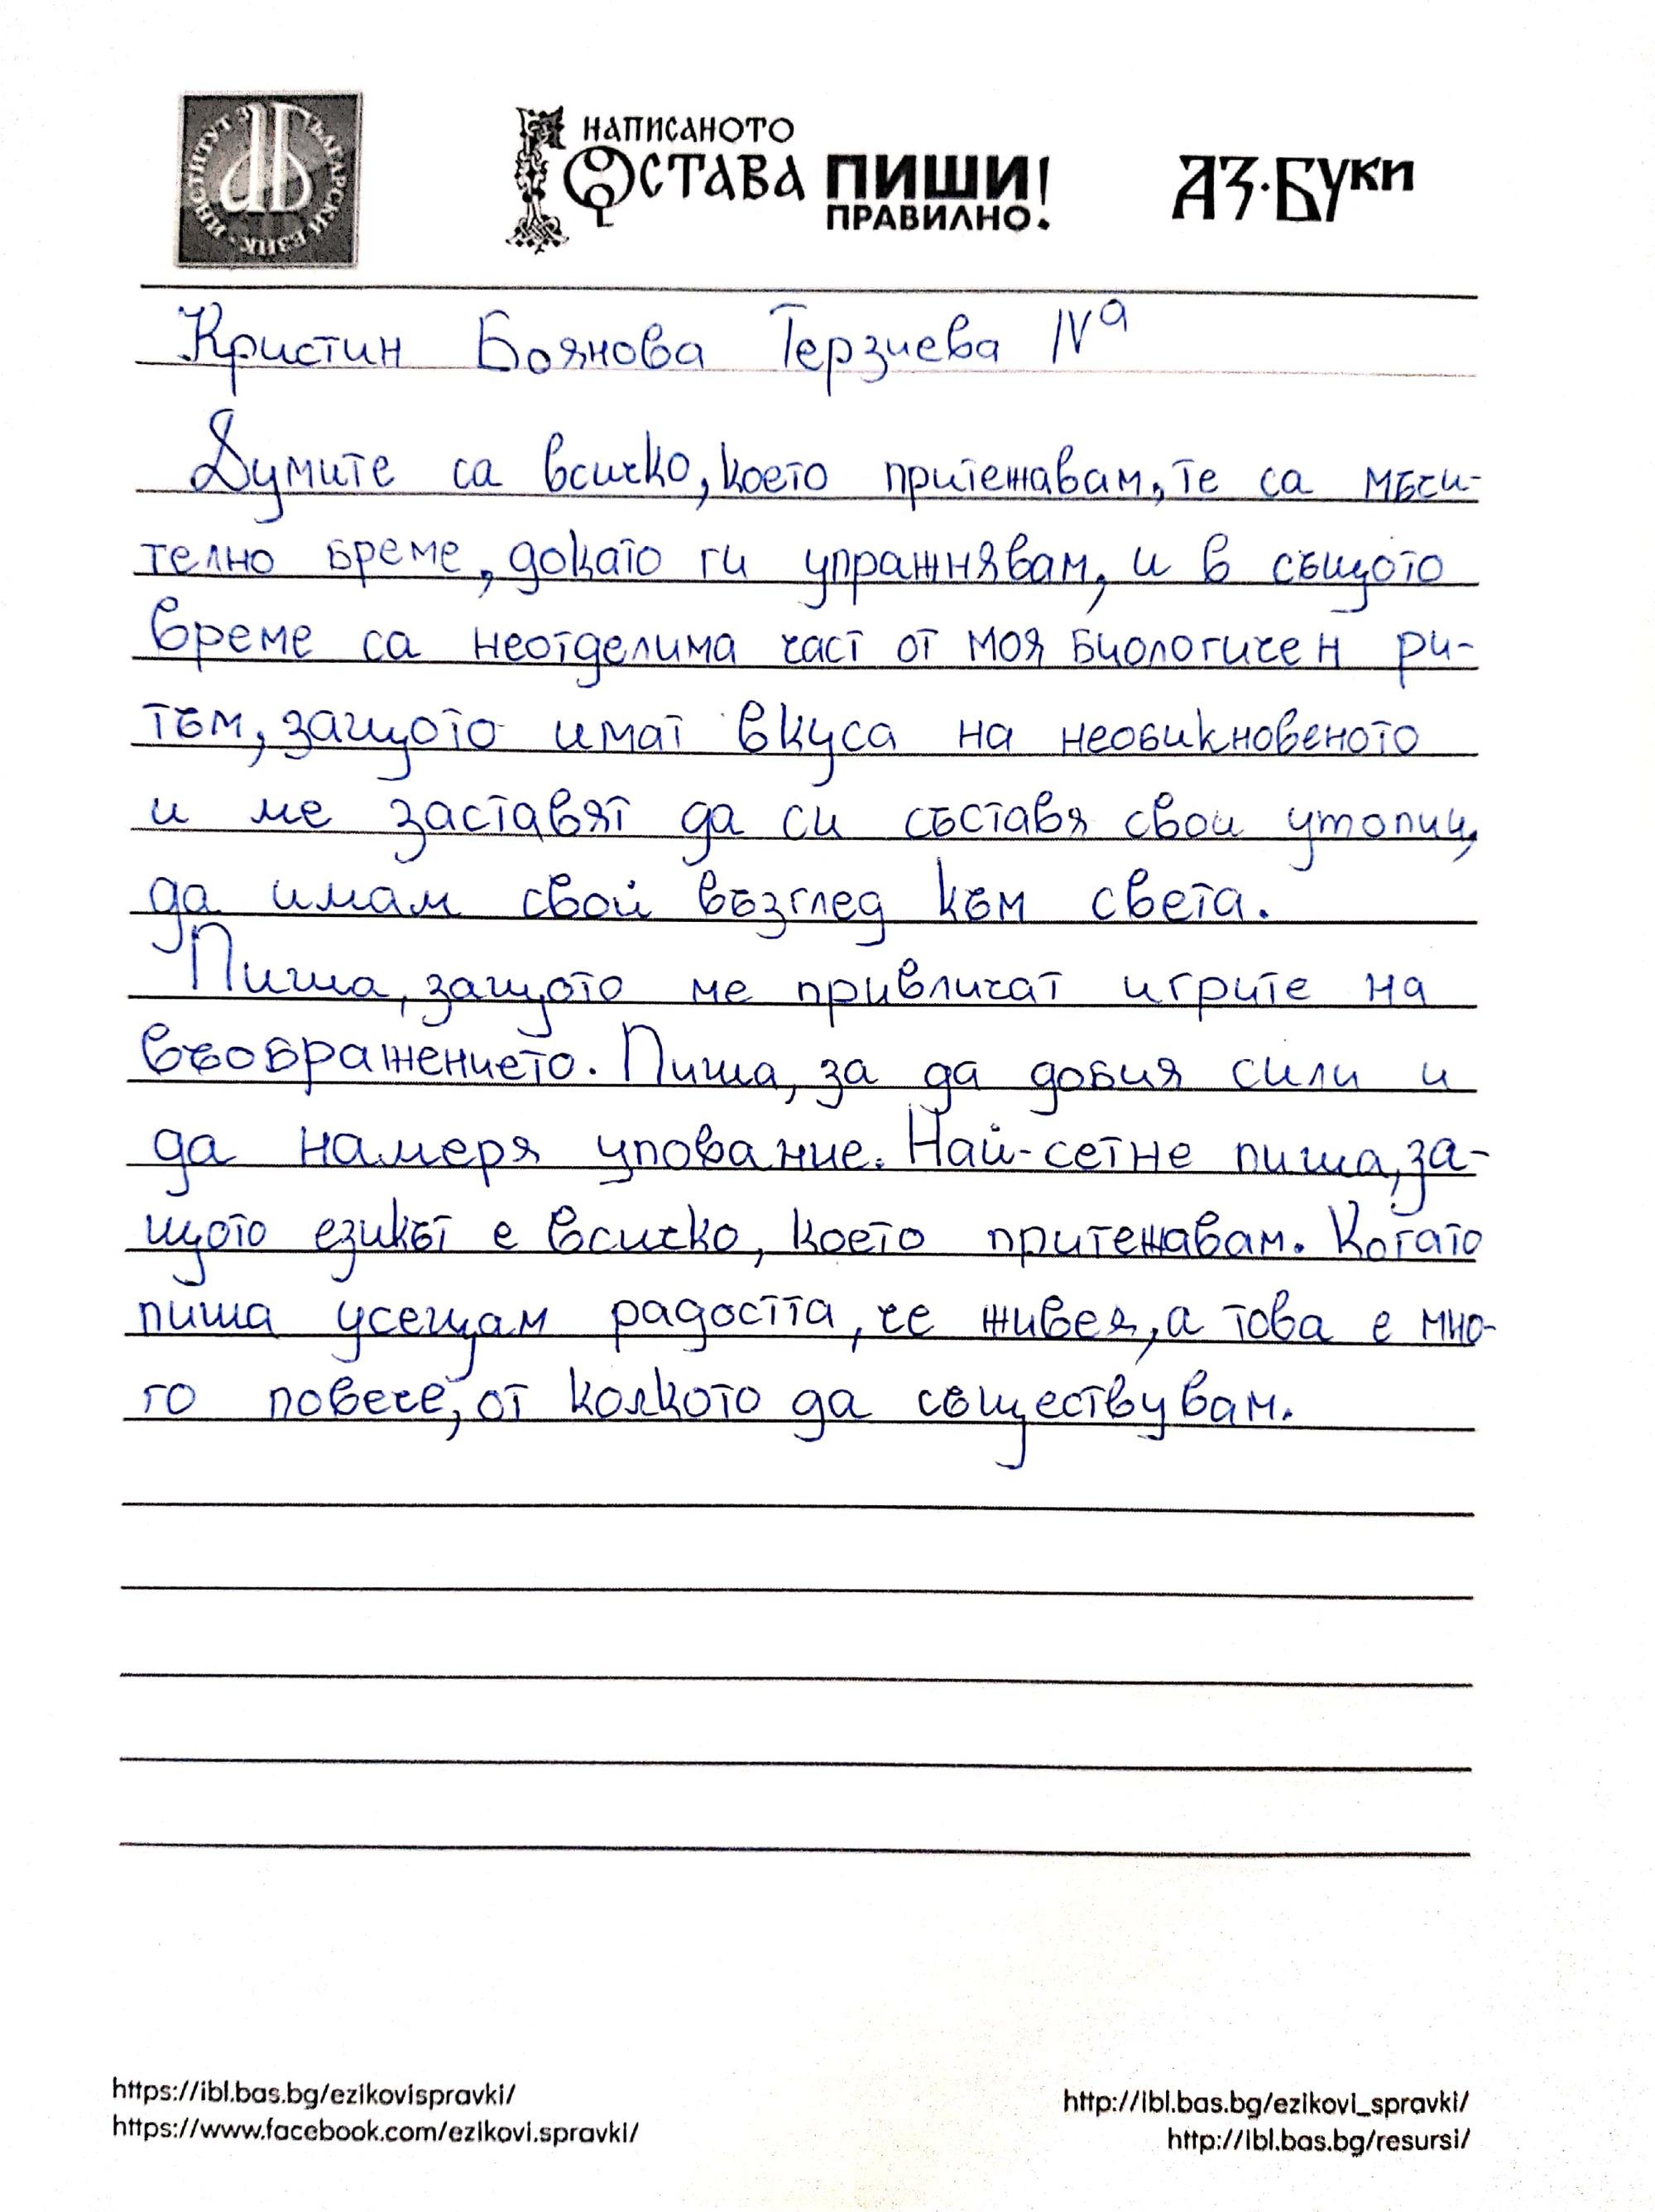 ИНСТИТУТ ЗА БЪЛГАРСКИ ЕЗИК
НАПИСАНОТО
ОСТАВА ПИШИ!
ПРАВИЛНО!
АЗ·БУКИ
Кристин Боянова Терзиева IVа
Думите са всичко, което притежавам, те са мъчи-
телно бреме, докато ги упражнявам, и в същото
време са неотделима част от моя биологичен ри-
тъм, защото имат вкуса на необикновеното
и ме заставят да си съставя свои утопии,
да имам свой възглед към света.
Пиша, защото ме привличат игрите на
въображението. Пиша, за да добия сили и
да намеря упование. Най-сетне пиша, за-
щото езикът е всичко, което притежавам. Когато
пиша усещам радостта, че живея, а това е мно-
го повече, от колкото да съществувам.
https://ibl.bas.bg/ezikovispravki/
https://www.facebook.com/ezikovi.spravki/
http://ibl.bas.bg/ezikovi_spravki/
http://ibl.bas.bg/resursi/